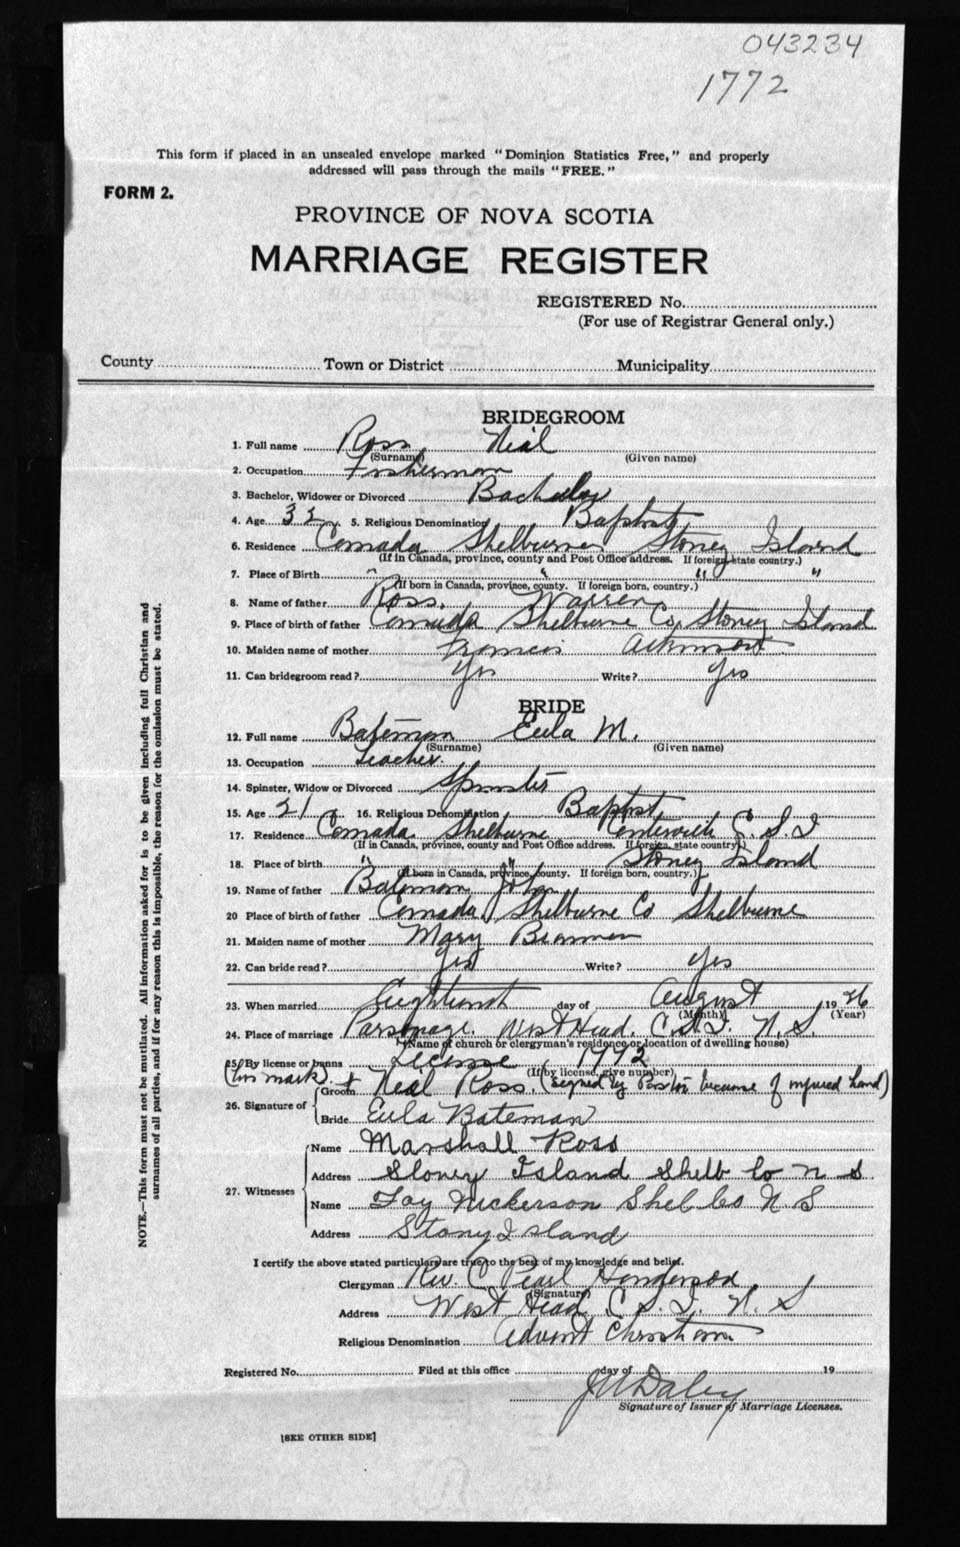 043234
1772
This form if placed in an unsealed envelope marked "Dominion Statistics Free," and properly
addressed will pass through the mails "FREE."
FORM 2.
PROVINCE OF NOVA SCOTIA
MARRIAGE REGISTER
REGISTERED No.
(For use of Registrar General only.)
County Town or District Municipality
BRIDEGROOM
1. Full name Ross Neal
(Surname) (Given name)
2. Occupation Fisherman
3. Bachelor, Widower or Divorced Bachelor
4. Age 32 5. Religious Denomination Baptist
6. Residence Canada Shelburne Stoney Island
(If in Canada, province, county and Post Office address. If foreign, state country.)
7. Place of Birth " " " "
(If born in Canada, province, county. If foreign born, country.)
8. Name of father Ross, Warren
9. Place of birth of father Canada Shelburne Co, Stoney Island
10. Maiden name of mother Francis Atkinson
11. Can bridegroom read? Yes Write? Yes
BRIDE
12. Full name Bateman Eula M.
(Surname) (Given name)
13. Occupation Teacher.
14. Spinster, Widow or Divorced Spinster
15. Age 21 16. Religious Denomination Baptist
17. Residence Canada Shelburne Centerville C. S. I
(If in Canada, province, county and Post Office address. If foreign, state country.)
18. Place of birth " " Stoney Island
(If born in Canada, province, county. If foreign born, country.)
19. Name of father Bateman John
20 Place of birth of father Canada, Shelburne Co Shelburne
21. Maiden name of mother Mary
22. Can bride read? Yes Write? yes
23. When married Eighteenth day of August 1926
(Month) (Year)
24. Place of marriage Parsonage. West Head. C. S. I. N. S.
(Name of church or clergyman's residence or location of dwelling house)
25. By license or banns License 1772
(If by license, give number)
(his mark). + Groom Neal Ross. (signed by Pastor because of injured hand)
26. Signature of
Bride Eula Bateman
Name Marshall Ross
Address Stoney Island Shelb Co N S
27. Witnesses
Name Fay Nickerson Shel Co N. S
Address Stony Island
I certify the above stated particulars are true to the best of my knowledge and belief.
Clergyman Rev. C Pearl Henderson
(Signature)
Address West Head C. S. I. N. S
Religious Denomination Advent Christian
Registered No. Filed at this office day of 19
J Daley
Signature of Issuer of Marriage Licenses.
[SEE OTHER SIDE]
NOTE.—This form must not be mutilated. All information asked for is to be given including full Christian and
surnames of all parties, and if for any reason this is impossible, the reason for the omission must be stated.